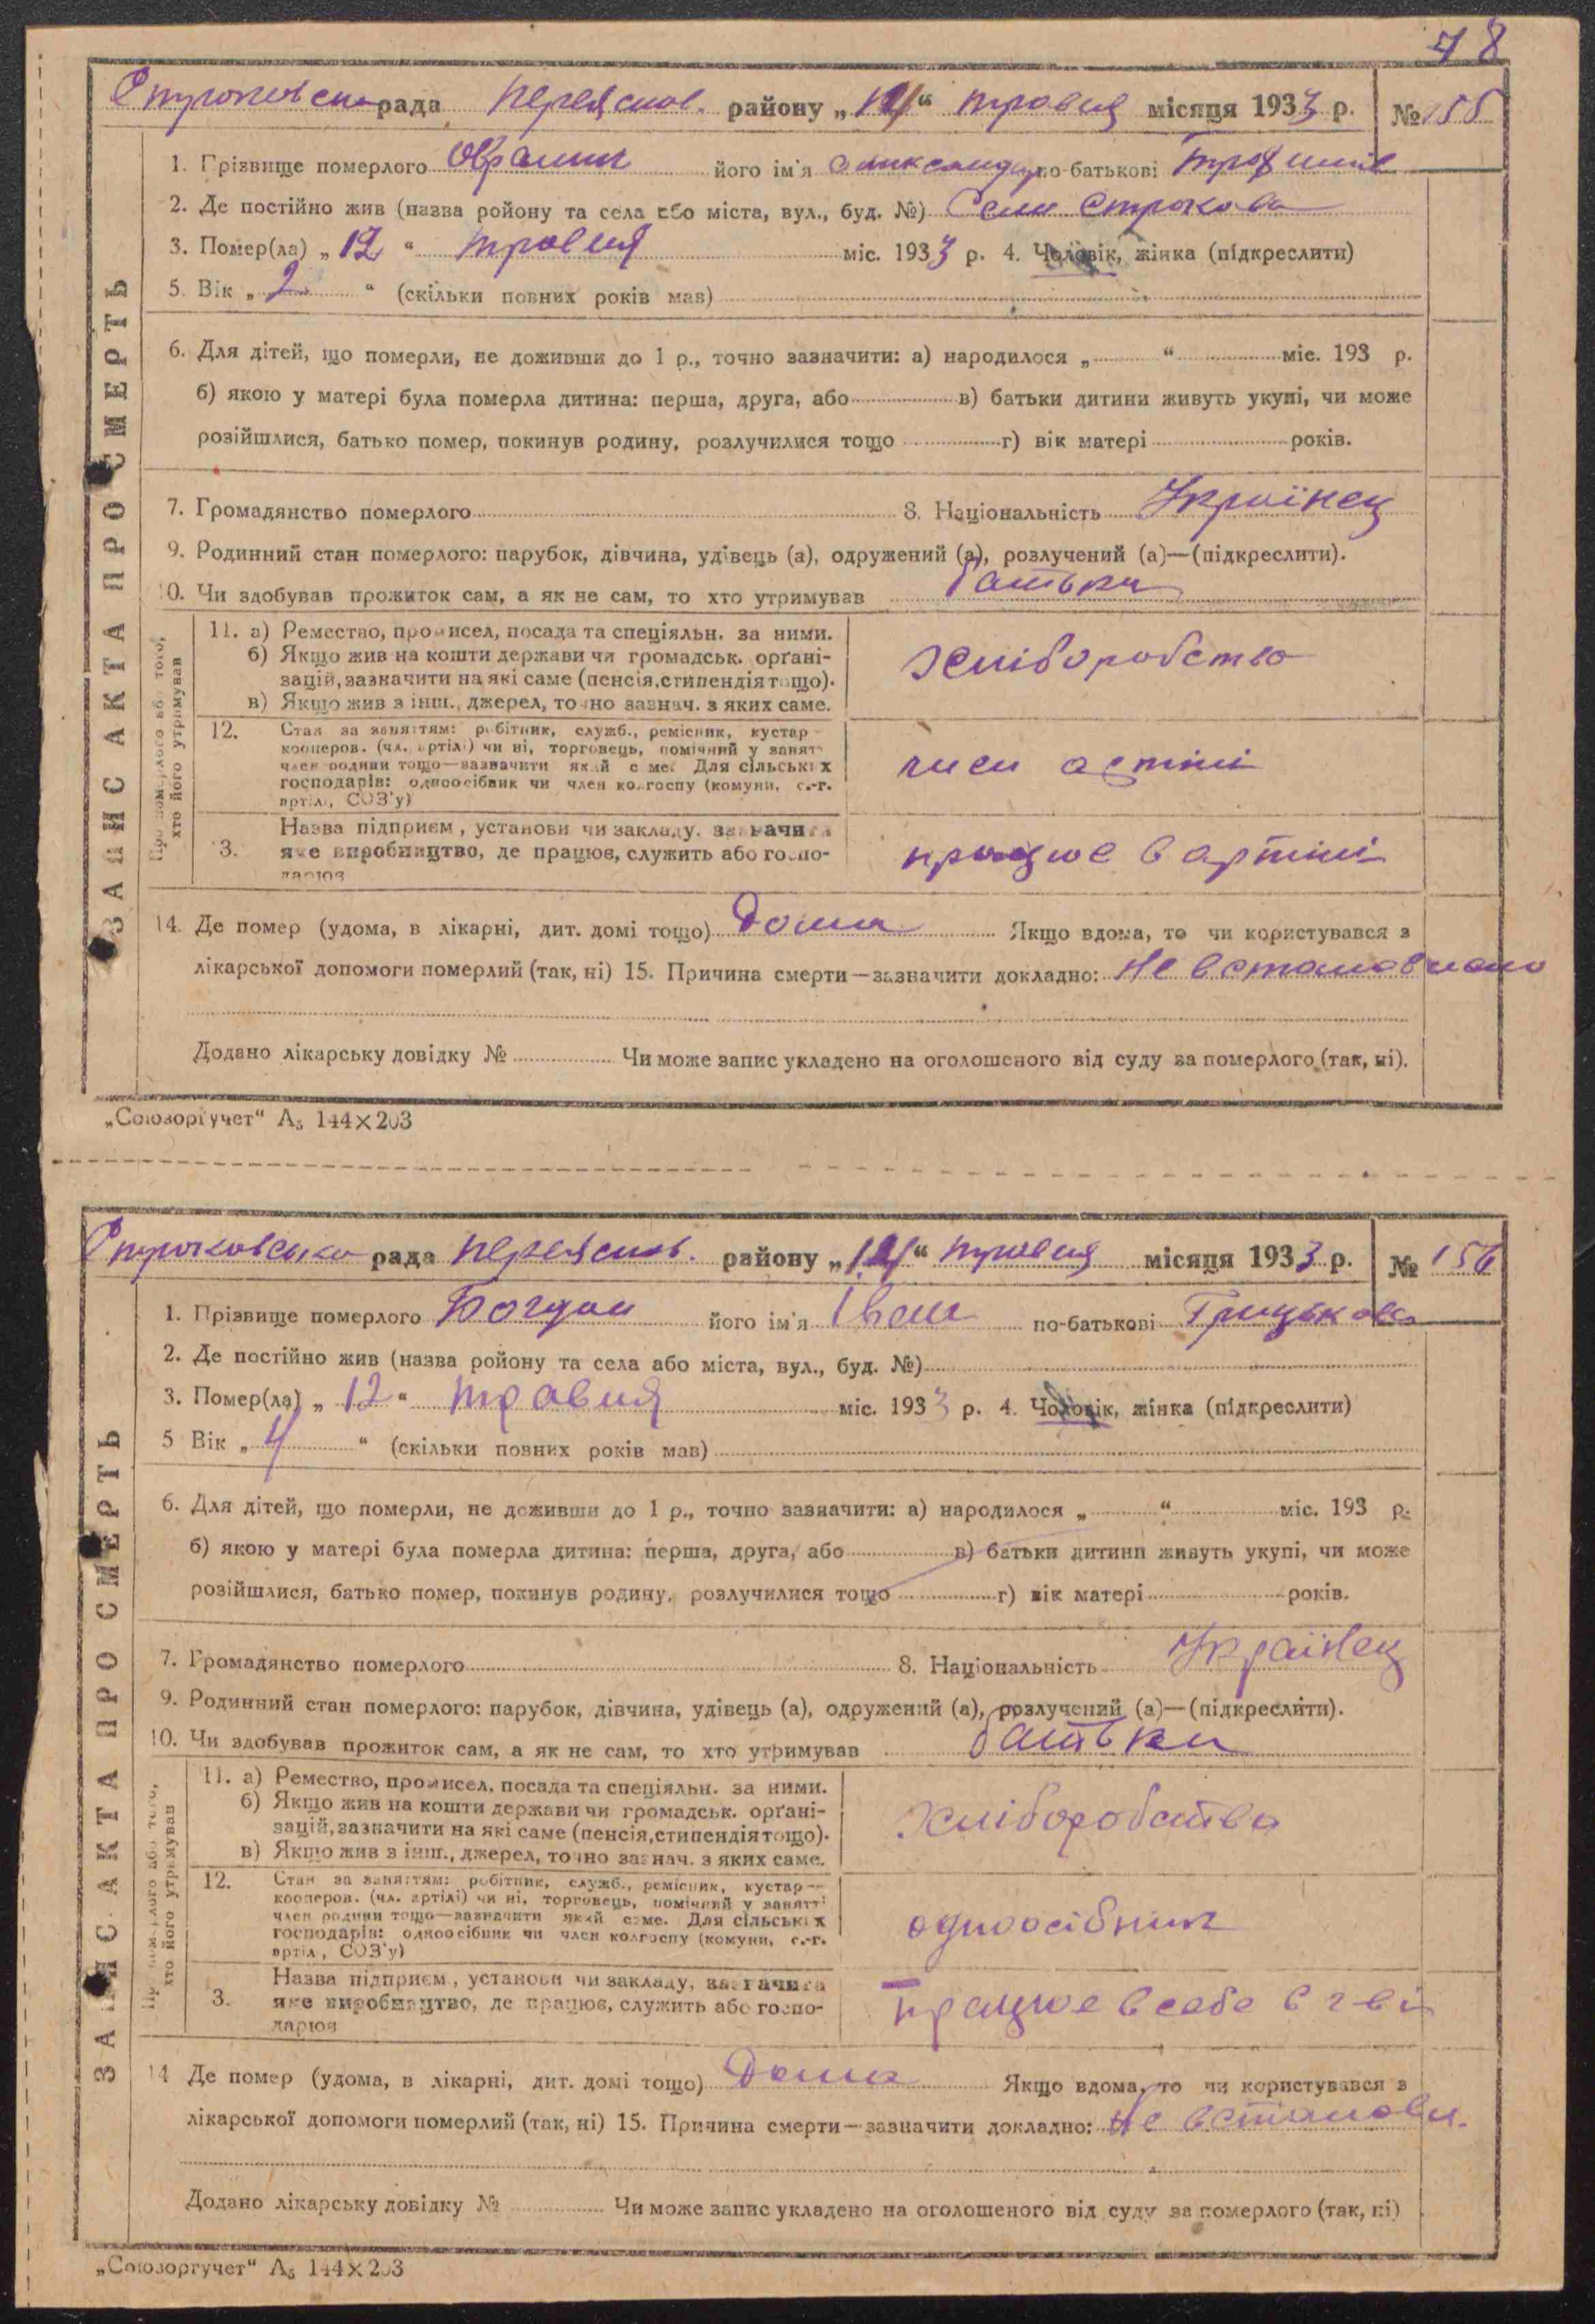 78
Строковська рада Переяслов. району „12“ травня місяця 1933 р. № 155
1. Прізвище померлого його ім'я Олександр по-батькові
2. Де постійно жив (назва ройону та села або міста, вул., буд. №) Село Строкова
3. Помер(ла) „12“ травня міс. 1933 р. 4. Чоловік, жінка (підкреслити)
5. Вік „2“ (скільки повних років мав)
6. Для дітей, що померли, не доживши до 1 р., точно зазначити: а) народилося „ “ міс. 193 р.
б) якою у матері була померла дитина: перша, друга, або в) батьки дитини живуть укупі, чи може
розійшлися, батько помер, покинув родину, розлучилися тощо г) вік матері років.
7. Громадянство померлого 8. Національність Українец
9. Родинний стан померлого: парубок, дівчина, удівець (а), одружений (а), розлучений (а)—(підкреслити).
10. Чи здобував прожиток сам, а як не сам, то хто утримував батьки
11. а) Ремество, промисел, посада та спеціяльн. за ними.
б) Якщо жив на кошти держави чи громадськ. орґані-
зацій, зазначити на які саме (пенсія, стипендія тощо).
в) Якщо жив з інш., джерел, точно зазнач. з яких саме.
хліборобство
12. Стан за заняттям: робітник, служб., ремісник, кустар—
кооперов. (чл. артілі) чи ні, торговець, помічний у занятті
член родини тощо—зазначити який саме. Для сільських
господарів: одноосібник чи член колгоспу (комуни, с.-г.
артіл., СОЗ'у)
член артілі
3. Назва підприєм., установи чи закладу, зазначити
яке виробництво, де працює, служить або госпо-
дарює
працює в артілі
14. Де помер (удома, в лікарні, дит. домі тощо) Дома Якщо вдома, то чи користувався з
лікарської допомоги померлий (так, ні) 15. Причина смерти—зазначити докладно: Не встановлено
Додано лікарську довідку № Чи може запис укладено на оголошеного від суду за померлого (так, ні).
ЗАПИС АКТА ПРО СМЕРТЬ
Про померлого або того,
хто його утримував
„Союзоргучет“ А₅ 144×203
Строковська рада Переяслов. району „12“ травня місяця 1933 р. № 156
1. Прізвище померлого Богдан його ім'я Іван по-батькові Грицьков
2. Де постійно жив (назва ройону та села або міста, вул., буд. №)
3. Помер(ла) „12“ травня міс. 1933 р. 4. Чоловік, жінка (підкреслити)
5 Вік „4“ (скільки повних років мав)
6. Для дітей, що померли, не доживши до 1 р., точно зазначити: а) народилося „ “ міс. 193 р.
б) якою у матері була померла дитина: перша, друга, або в) батьки дитини живуть укупі, чи може
розійшлися, батько помер, покинув родину, розлучилися тощо г) вік матері років.
7. Громадянство померлого 8. Національність Українец
9. Родинний стан померлого: парубок, дівчина, удівець (а), одружений (а), розлучений (а)—(підкреслити).
10. Чи здобував прожиток сам, а як не сам, то хто утримував батьки
11. а) Ремество, промисел, посада та спеціяльн. за ними.
б) Якщо жив на кошти держави чи громадськ. орґані-
зацій, зазначити на які саме (пенсія, стипендія тощо).
в) Якщо жив з інш., джерел, точно зазнач. з яких саме.
хліборобство
12. Стан за заняттям: робітник, служб., ремісник, кустар—
кооперов. (чл. артілі) чи ні, торговець, помічний у занятті
член родини тощо—зазначити який саме. Для сільських
господарів: одноосібник чи член колгоспу (комуни, с.-г.
артіл., СОЗ'у)
одноосібник
3. Назва підприєм., установи чи закладу, зазначити
яке виробництво, де працює, служить або госпо-
дарює
Працює в себе в г-ві
14 Де помер (удома, в лікарні, дит. домі тощо) Дома Якщо вдома, то чи користувався з
лікарської допомоги померлий (так, ні) 15. Причина смерти—зазначити докладно: Не встановл.
Додано лікарську довідку № Чи може запис укладено на оголошеного від суду за померлого (так, ні)
ЗАПИС АКТА ПРО СМЕРТЬ
Про померлого або того,
хто його утримував
„Союзоргучет“ А₅ 144×203